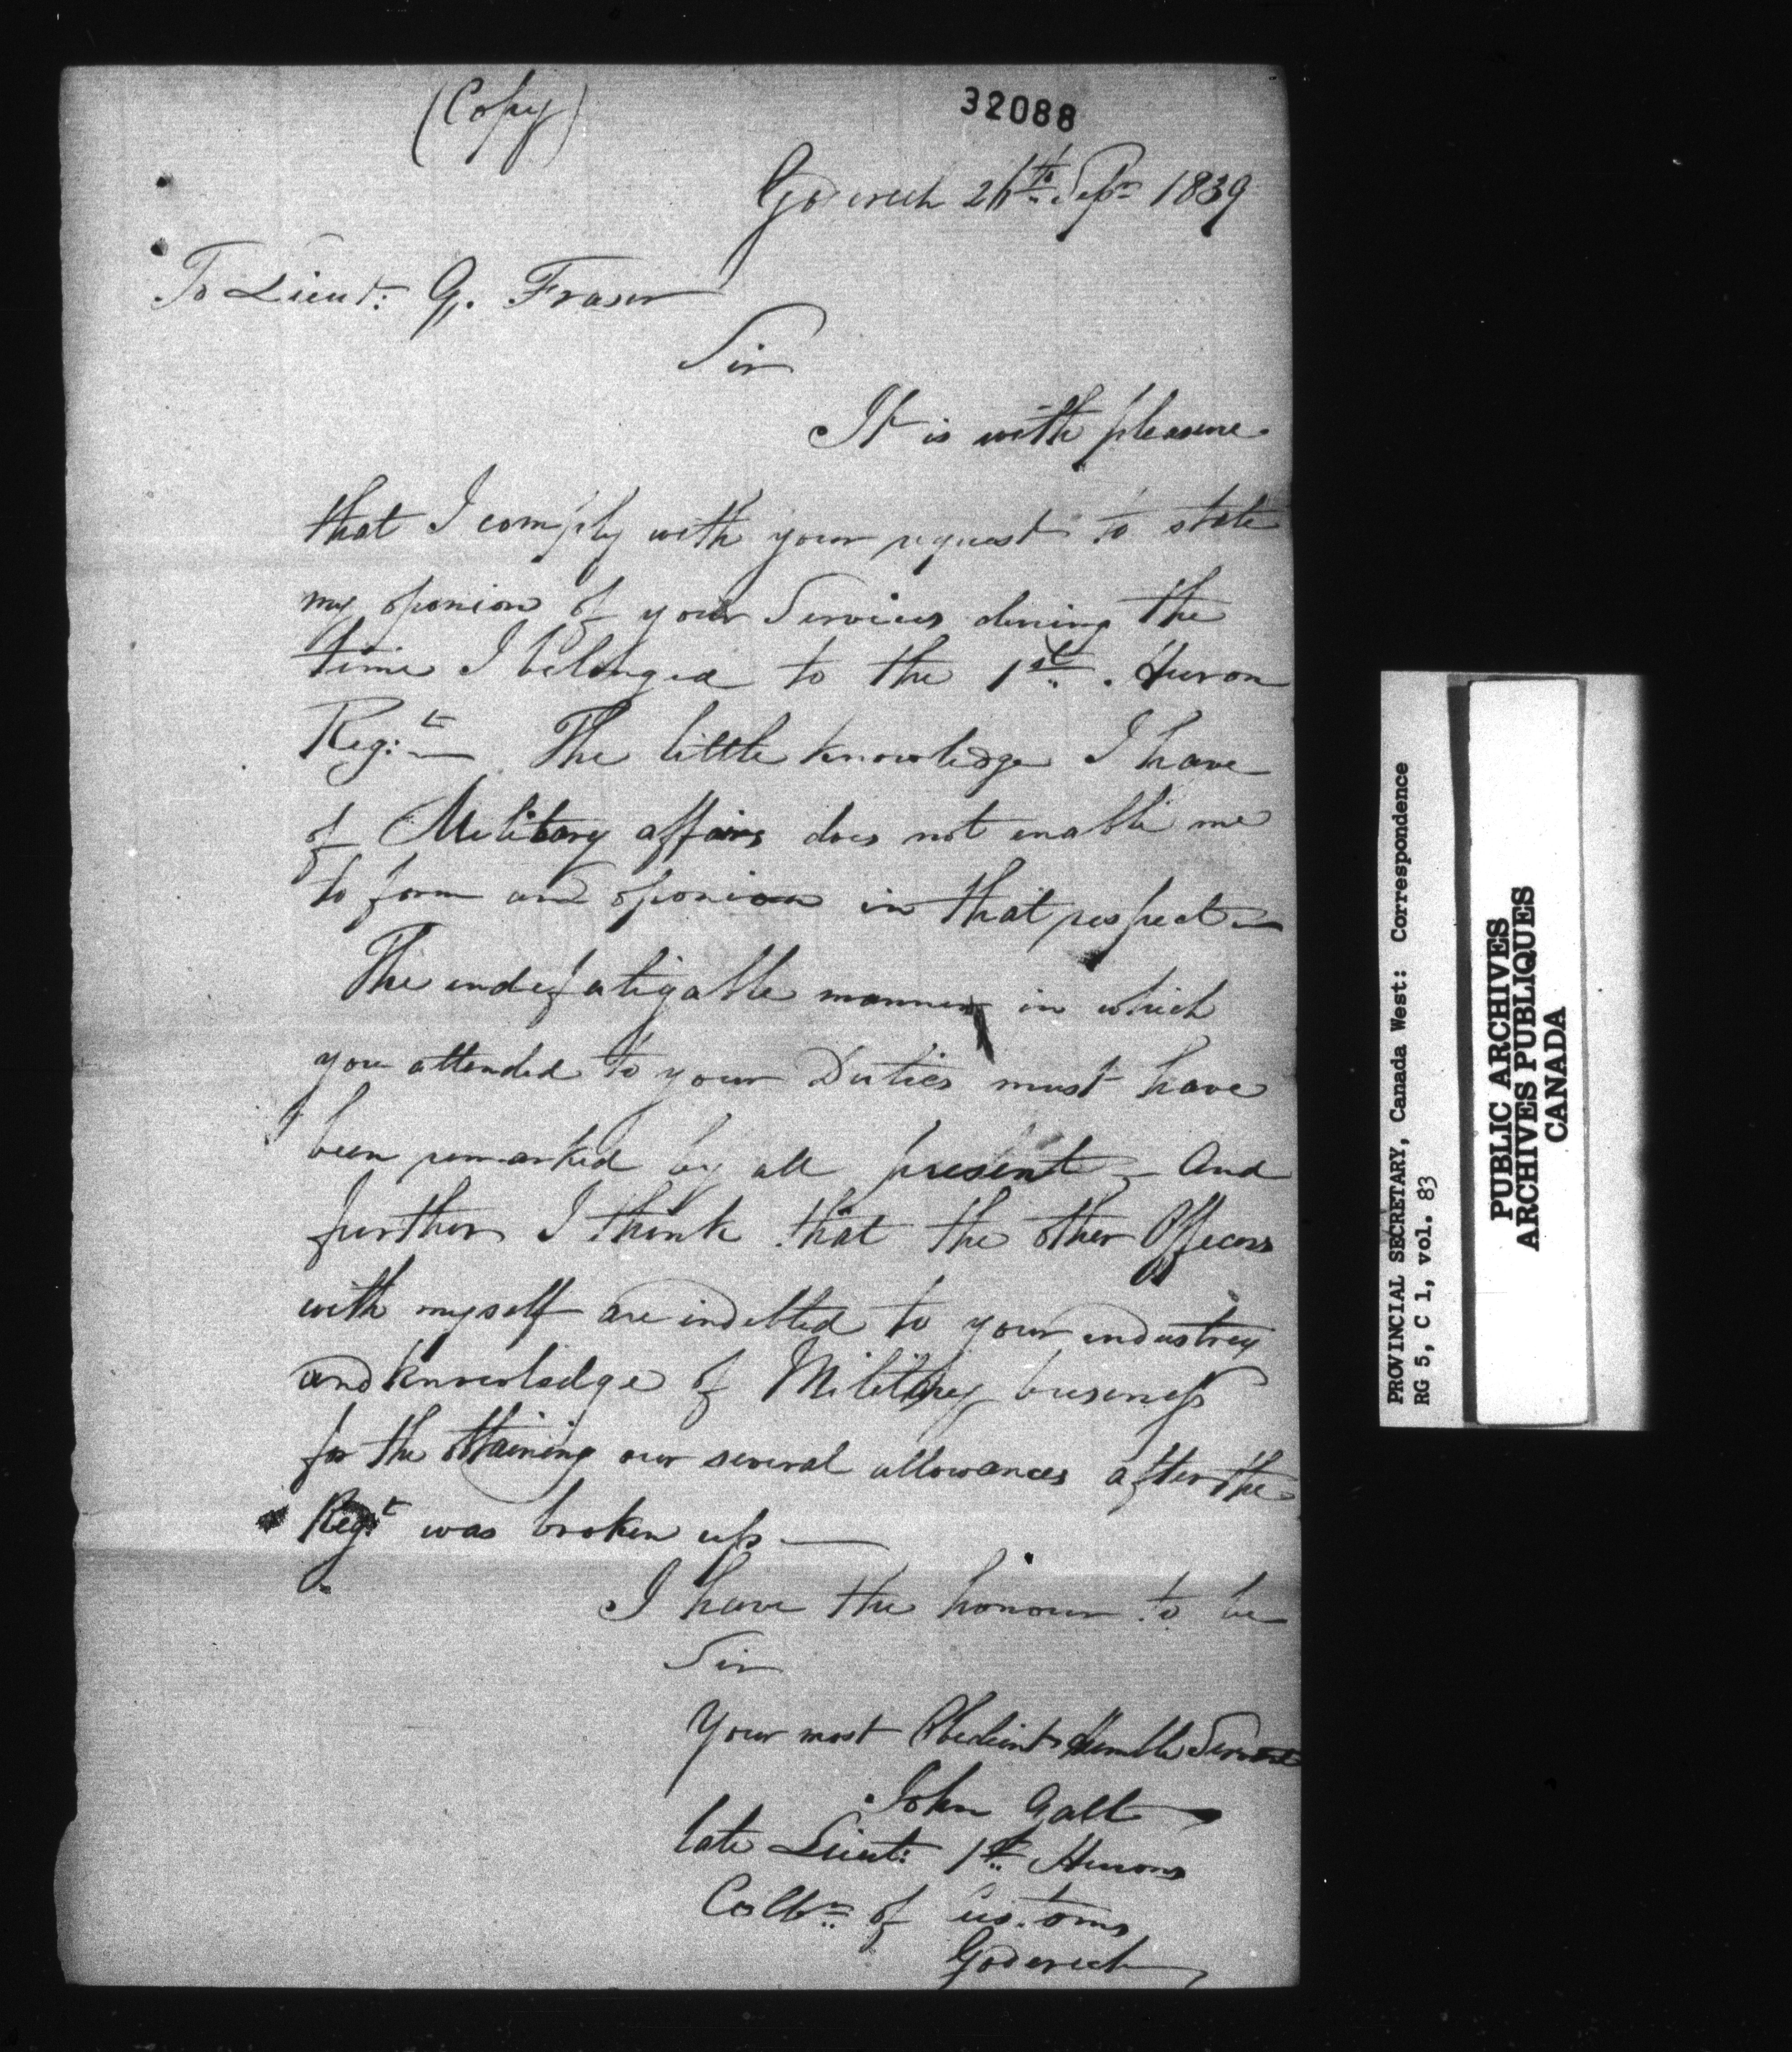 (Copy)
32088
Goderich 26th Sepr 1839
To Lieut: G. Fraser
Sir
It is with pleasure
that I comply with your request to state
my oponion of your Services during the
time I belonged to the 1st. Huron
Reg:t — The little knowledge I have
of Military affairs does not enable me
to form an oponion in that respect —
The indefatigable manner in which
you attended to your Duties must have
been remarked by all present — And
further I think that the other Officers
with myself are indebted to your industrey
and knowledge of Military business
for the obtaining our several allowances after the
Regt was broken up —
I have the honour to be
Sir
Your most Obedient Humble Servant
John Galt
late Lieut: 1st Hurons
Collr of Customs
Goderich
PROVINCIAL SECRETARY, Canada West: Correspondence
RG 5, C 1, vol. 83
PUBLIC ARCHIVES
ARCHIVES PUBLIQUES
CANADA